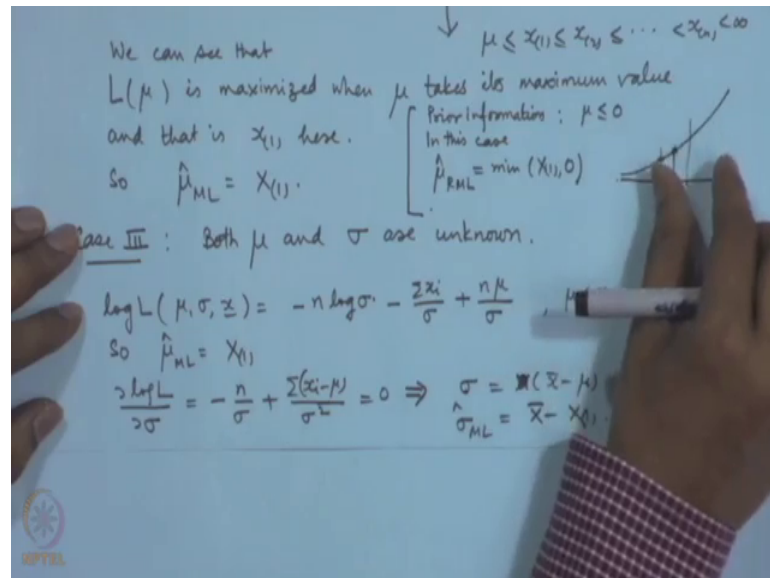 μ ≤ x₍₁₎ ≤ x₍₂₎ ≤ ⋯ < x₍ₙ₎ < ∞
We can see that
L(μ) is maximized when μ takes its maximum value
and that is x₍₁₎ here.
So μ̂_ML = X₍₁₎.
Prior Information : μ ≤ 0
In this case
μ̂_RML = min (X₍₁₎, 0)
Case III : Both μ and σ are unknown.
log L ( μ, σ, x ) = - n log σ - Σxi/σ + nμ/σ ,
So μ̂_ML = X₍₁₎
∂ log L/∂σ = - n/σ + Σ(xi-μ)/σ² = 0 ⇒ σ = (x̄ - μ)
σ̂_ML = X̄ - X₍₁₎.
NPTEL